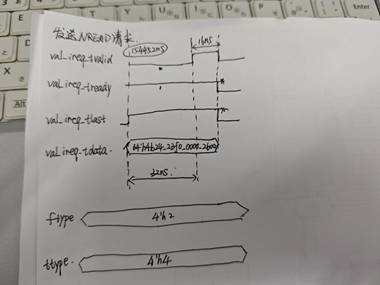 发送NREAD请求.
154452ns
16ns
val_ireq_tvalid
val_ireq_tready
val_ireq_tlast
val_ireq_tdata.
32ns.
ftype
4'h2
ttype.
4'h4